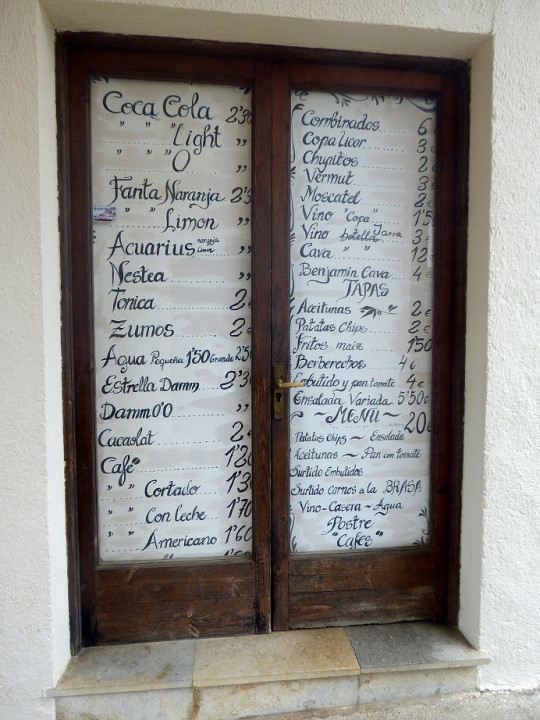 Coca Cola 2'30
" " Light "
" " O "
Fanta Naranja 2'3
" " Limon "
Acuarius naranja Limon "
Nestea "
Tonica 2€
Zumos 2€
Agua Pequeña 1'50 Grande 2'50
Estrella Damm 2'30
Damm 0'0 "
Cacaolat 2€
Café 1'20
" " Cortado 1'3
" " Con leche 1'70
" " Americano 1'60
Combinados 6
Copa Licor 3
Chupitos 2
Vermut 3
Moscatel 2
Vino "Copa" 1'5
Vino botella Jarra 3€
Cava " " 12
Benjamin Cava 4€
TAPAS
Aceitunas 2€
Patatas Chips 2€
Fritos maiz 1'50
Berberechos 4€
Embutido y pan tomate 4€
Ensalada Variada 5'50€
~ MENU ~ 20€
Patatas Chips ~ Ensalada
Aceitunas ~ Pan con tomate
Surtido Embutidos
Surtido carnes a la BRASA
Vino-Casera-Agua
Postre
"Cafes"